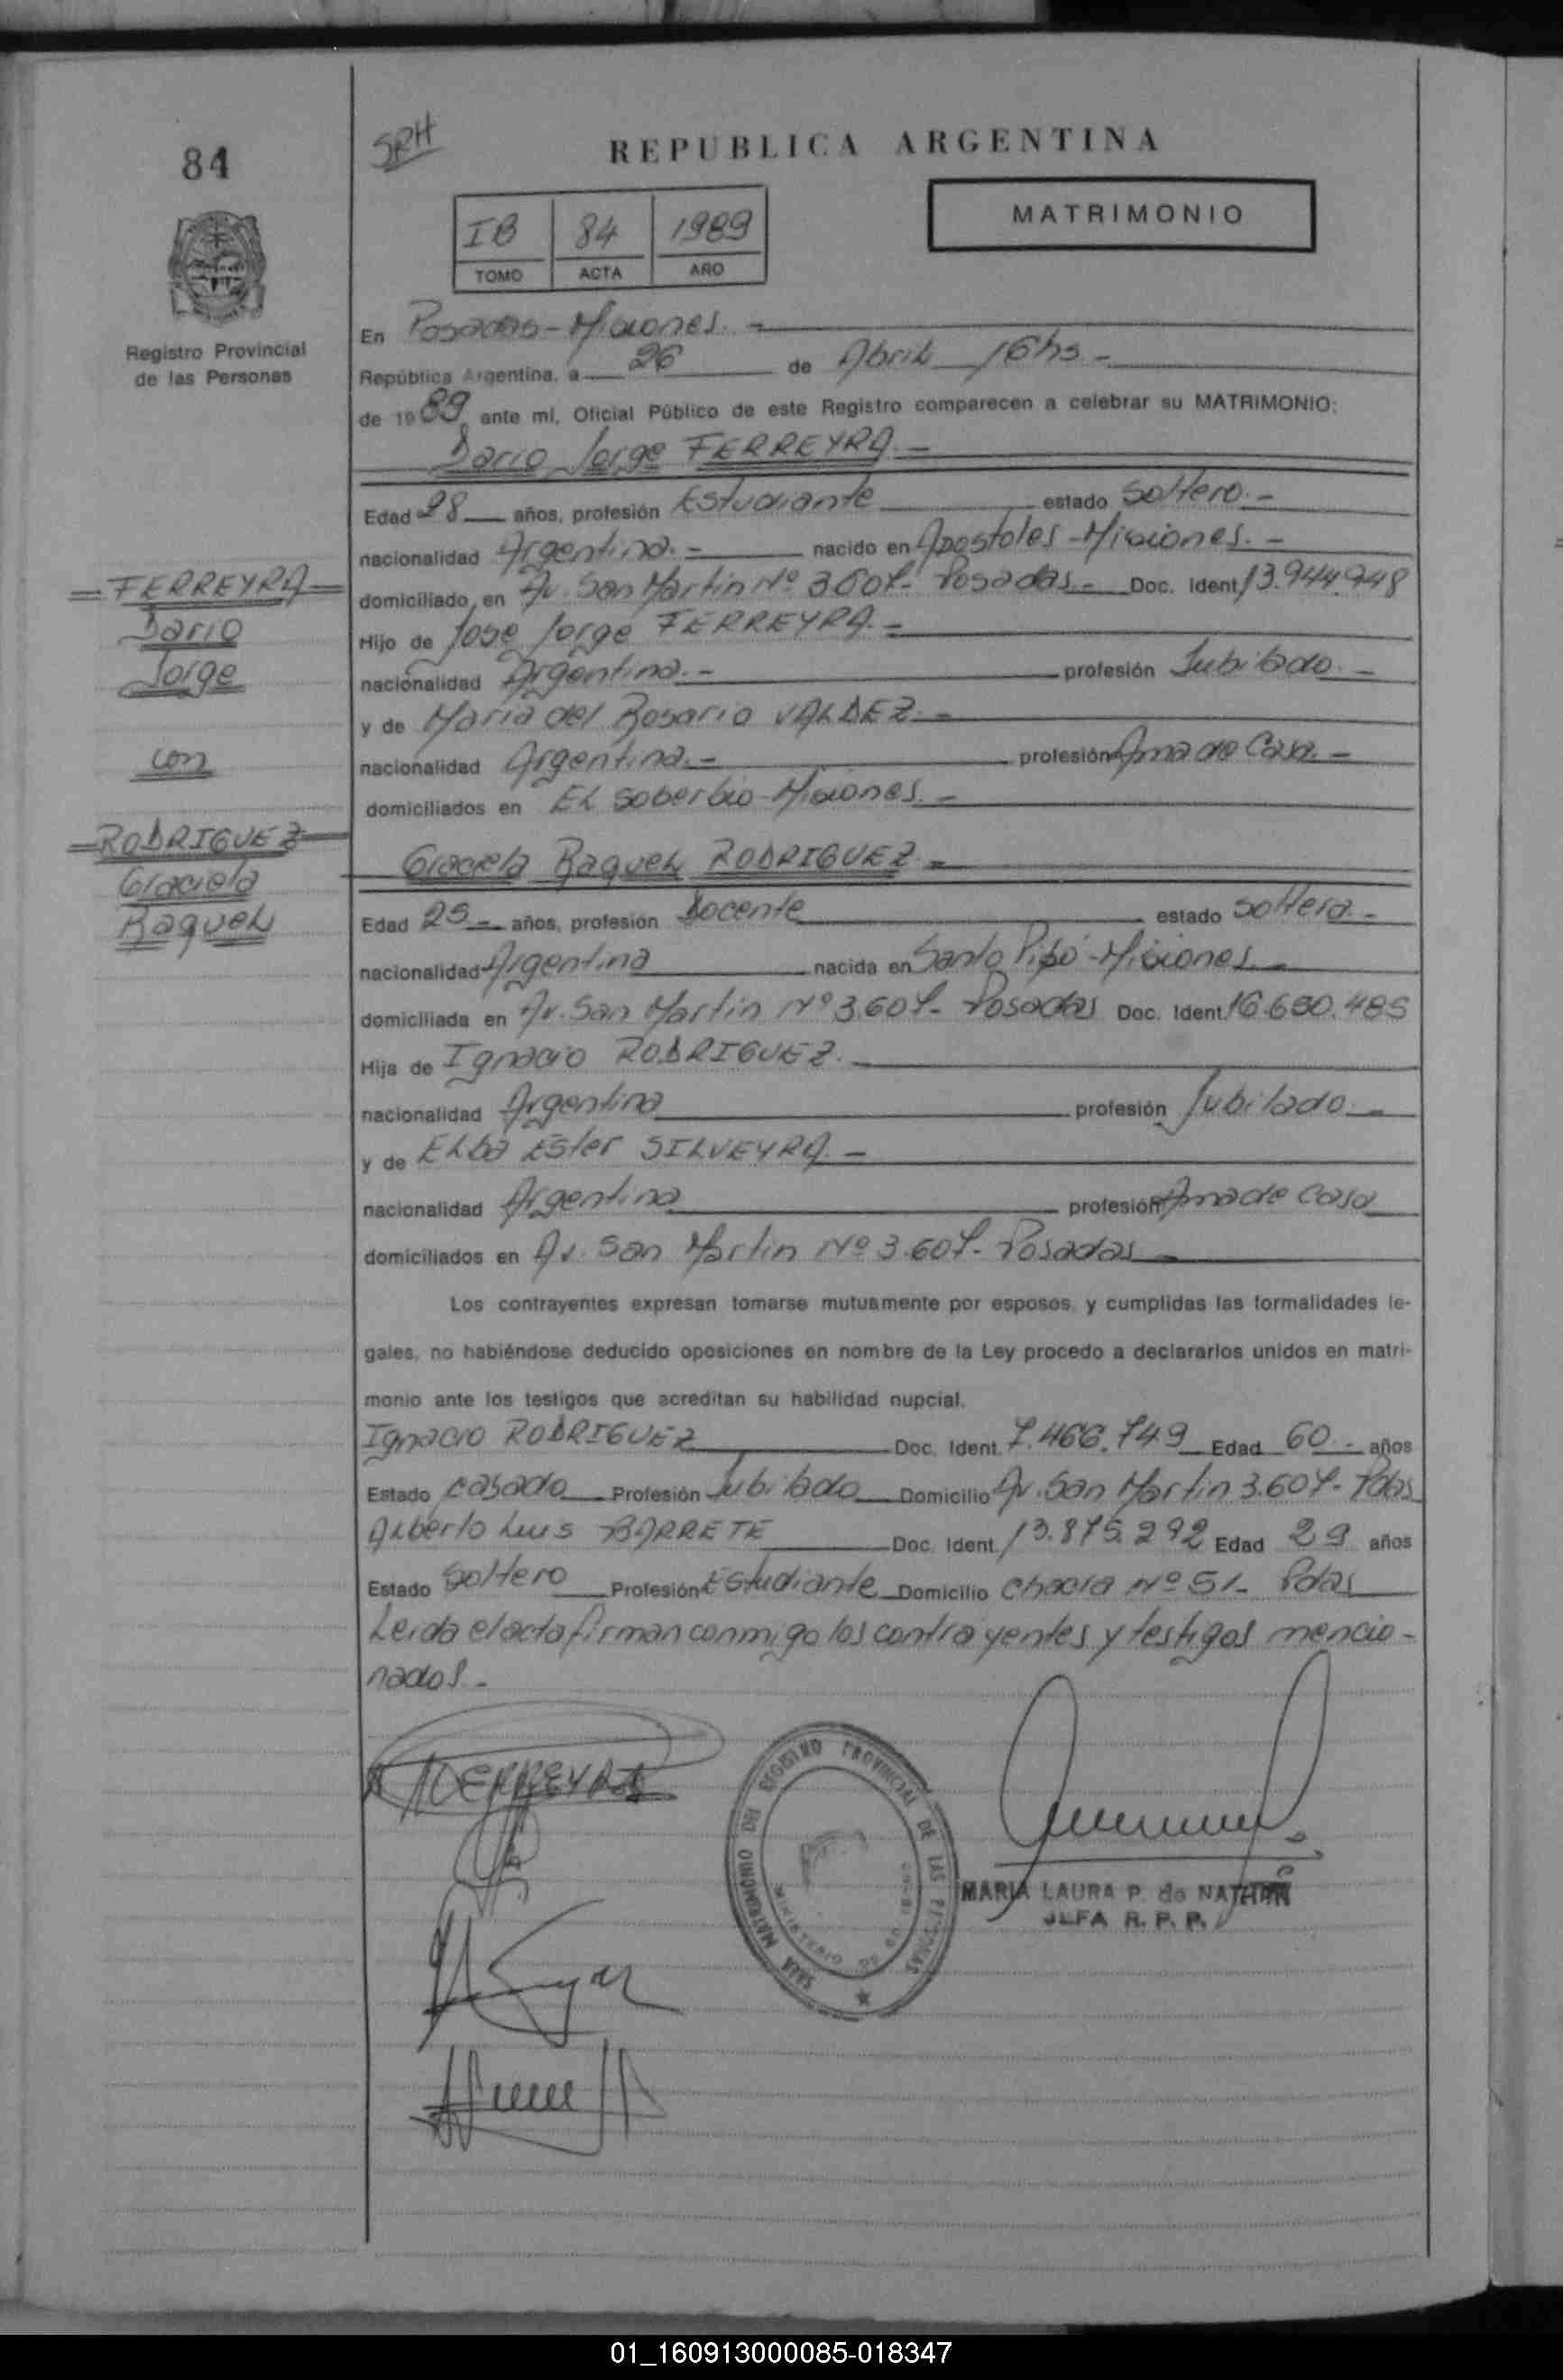 84
SRH
REPUBLICA ARGENTINA
IB 84 1989
TOMO ACTA AÑO
MATRIMONIO
Registro Provincial
de las Personas
En Posadas - Misiones.-
República Argentina, a 26 de Abril 16hs-
de 1989 ante mí, Oficial Público de este Registro comparecen a celebrar su MATRIMONIO:
Dario Jorge FERREYRA.-
Edad 28 años, profesión Estudiante estado Soltero.-
nacionalidad Argentina.- nacido en Apostoles - Misiones.-
domiciliado en Av. San Martin Nº 3607- Posadas- Doc. Ident 13.944.948
Hijo de Jose Jorge FERREYRA.-
nacionalidad Argentina.- profesión Jubilado.-
y de Maria del Rosario VALDEZ.-
nacionalidad Argentina.- profesión Ama de Casa.-
domiciliados en El Soberbio - Misiones.-
FERREYRA
Dario
Jorge
con
RODRIGUEZ
Graciela
Raquel
Graciela Raquel RODRIGUEZ.-
Edad 25- años, profesión Docente estado Soltera.-
nacionalidad Argentina nacida en Santo Pipó - Misiones.-
domiciliada en Av. San Martin Nº 3.607- Posadas Doc. Ident. 16.680.485
Hija de Ignacio RODRIGUEZ.
nacionalidad Argentina profesión Jubilado.-
y de Elba Ester SILVEYRA.-
nacionalidad Argentina profesión Ama de Casa
domiciliados en Av. San Martin Nº 3.607- Posadas-
Los contrayentes expresan tomarse mutuamente por esposos, y cumplidas las formalidades le-
gales, no habiéndose deducido oposiciones en nombre de la Ley procedo a declararlos unidos en matri-
monio ante los testigos que acreditan su habilidad nupcial.
Ignacio RODRIGUEZ Doc. Ident. 7.466.749 Edad 60- años
Estado Casado Profesión Jubilado Domicilio Av. San Martin 3.607- Pdas
Alberto Luis BARRETE Doc. Ident. 13.875.292 Edad 29 años
Estado Soltero Profesión Estudiante Domicilio Chacra Nº 51- Pdas
Leida el acta firman conmigo los contrayentes y testigos mencio-
nados.-
FERREYRA
SALA MATRIMONIO DEL REGISTRO PROVINCIAL DE LAS PERSONAS
MINISTERIO DE GOBIERNO
MARIA LAURA P. de NATHAN
JEFA R. P. P.
01_160913000085-018347